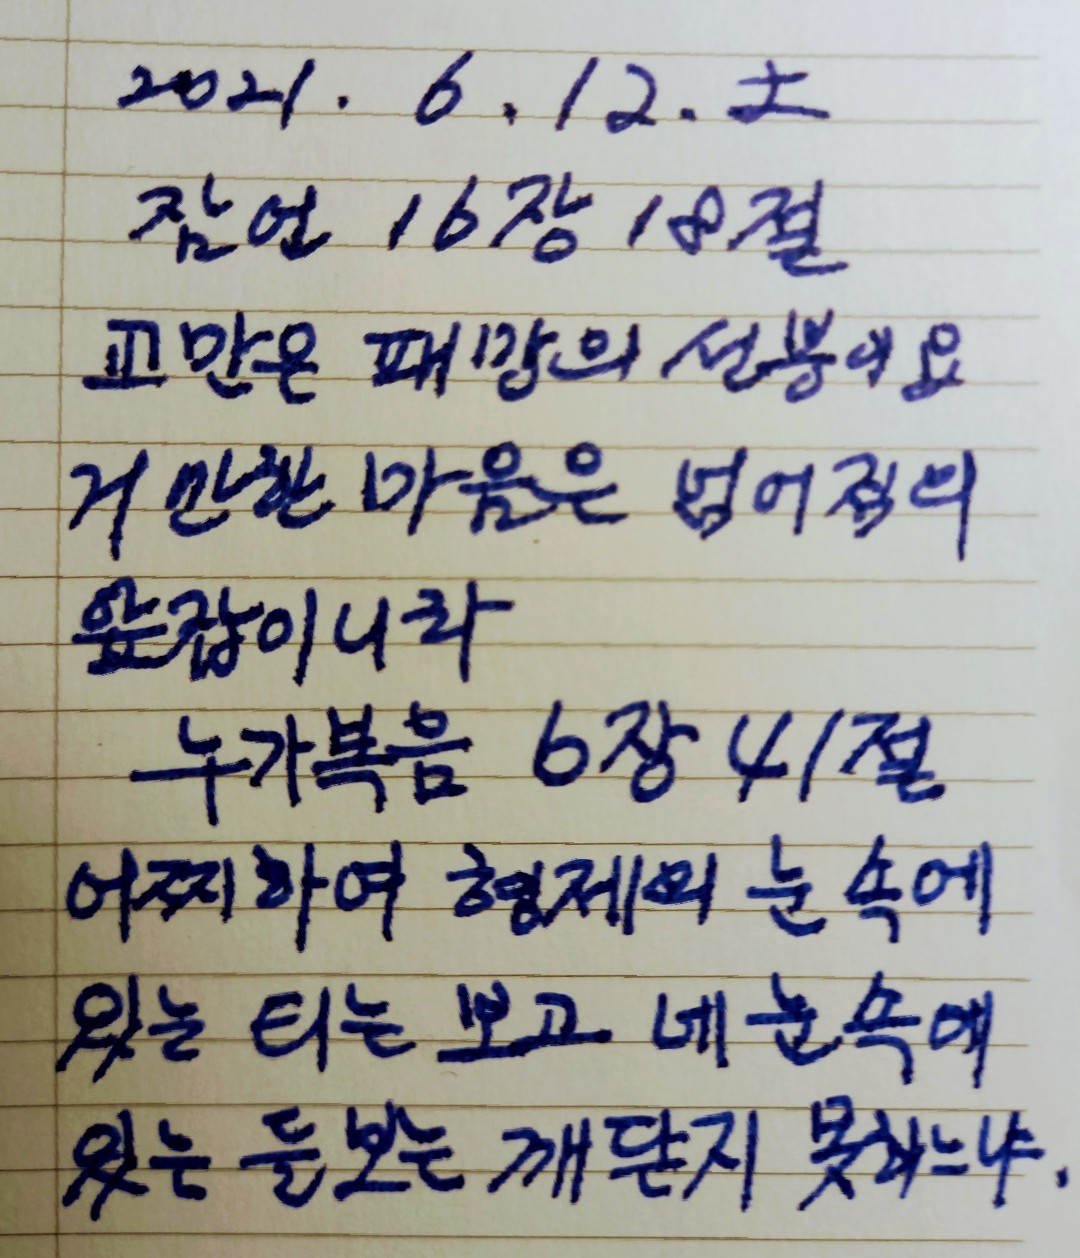 2021. 6. 12. 土
잠언 16장 18절
교만은 패망의 선봉이요
거만한 마음은 넘어짐의
앞잡이니라
누가복음 6장 41절
어찌하여 형제의 눈 속에
있는 티는 보고 네 눈 속에
있는 들보는 깨닫지 못하느냐.